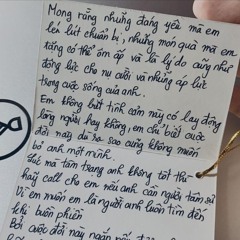 Mong rằng những đáng yêu mà em
lén lút chuẩn bị, những món quà mà em
tặng có thể ấm áp và là lý do cũng như
động lực cho nụ cười và những áp lực
trong cuộc sống của anh.
Em không biết tình cảm này có lay động
lòng người hay không, em chỉ biết cuộc
đời này dù ra sao cũng không muốn
bỏ anh một mình.
Giấc mà tâm trạng anh không tốt thì
hãy call cho em nếu anh cần người tâm sự
Vì em muốn em là người anh luôn tìm đến
khi buồn phiền
Bởi cuộc đời này ngắn